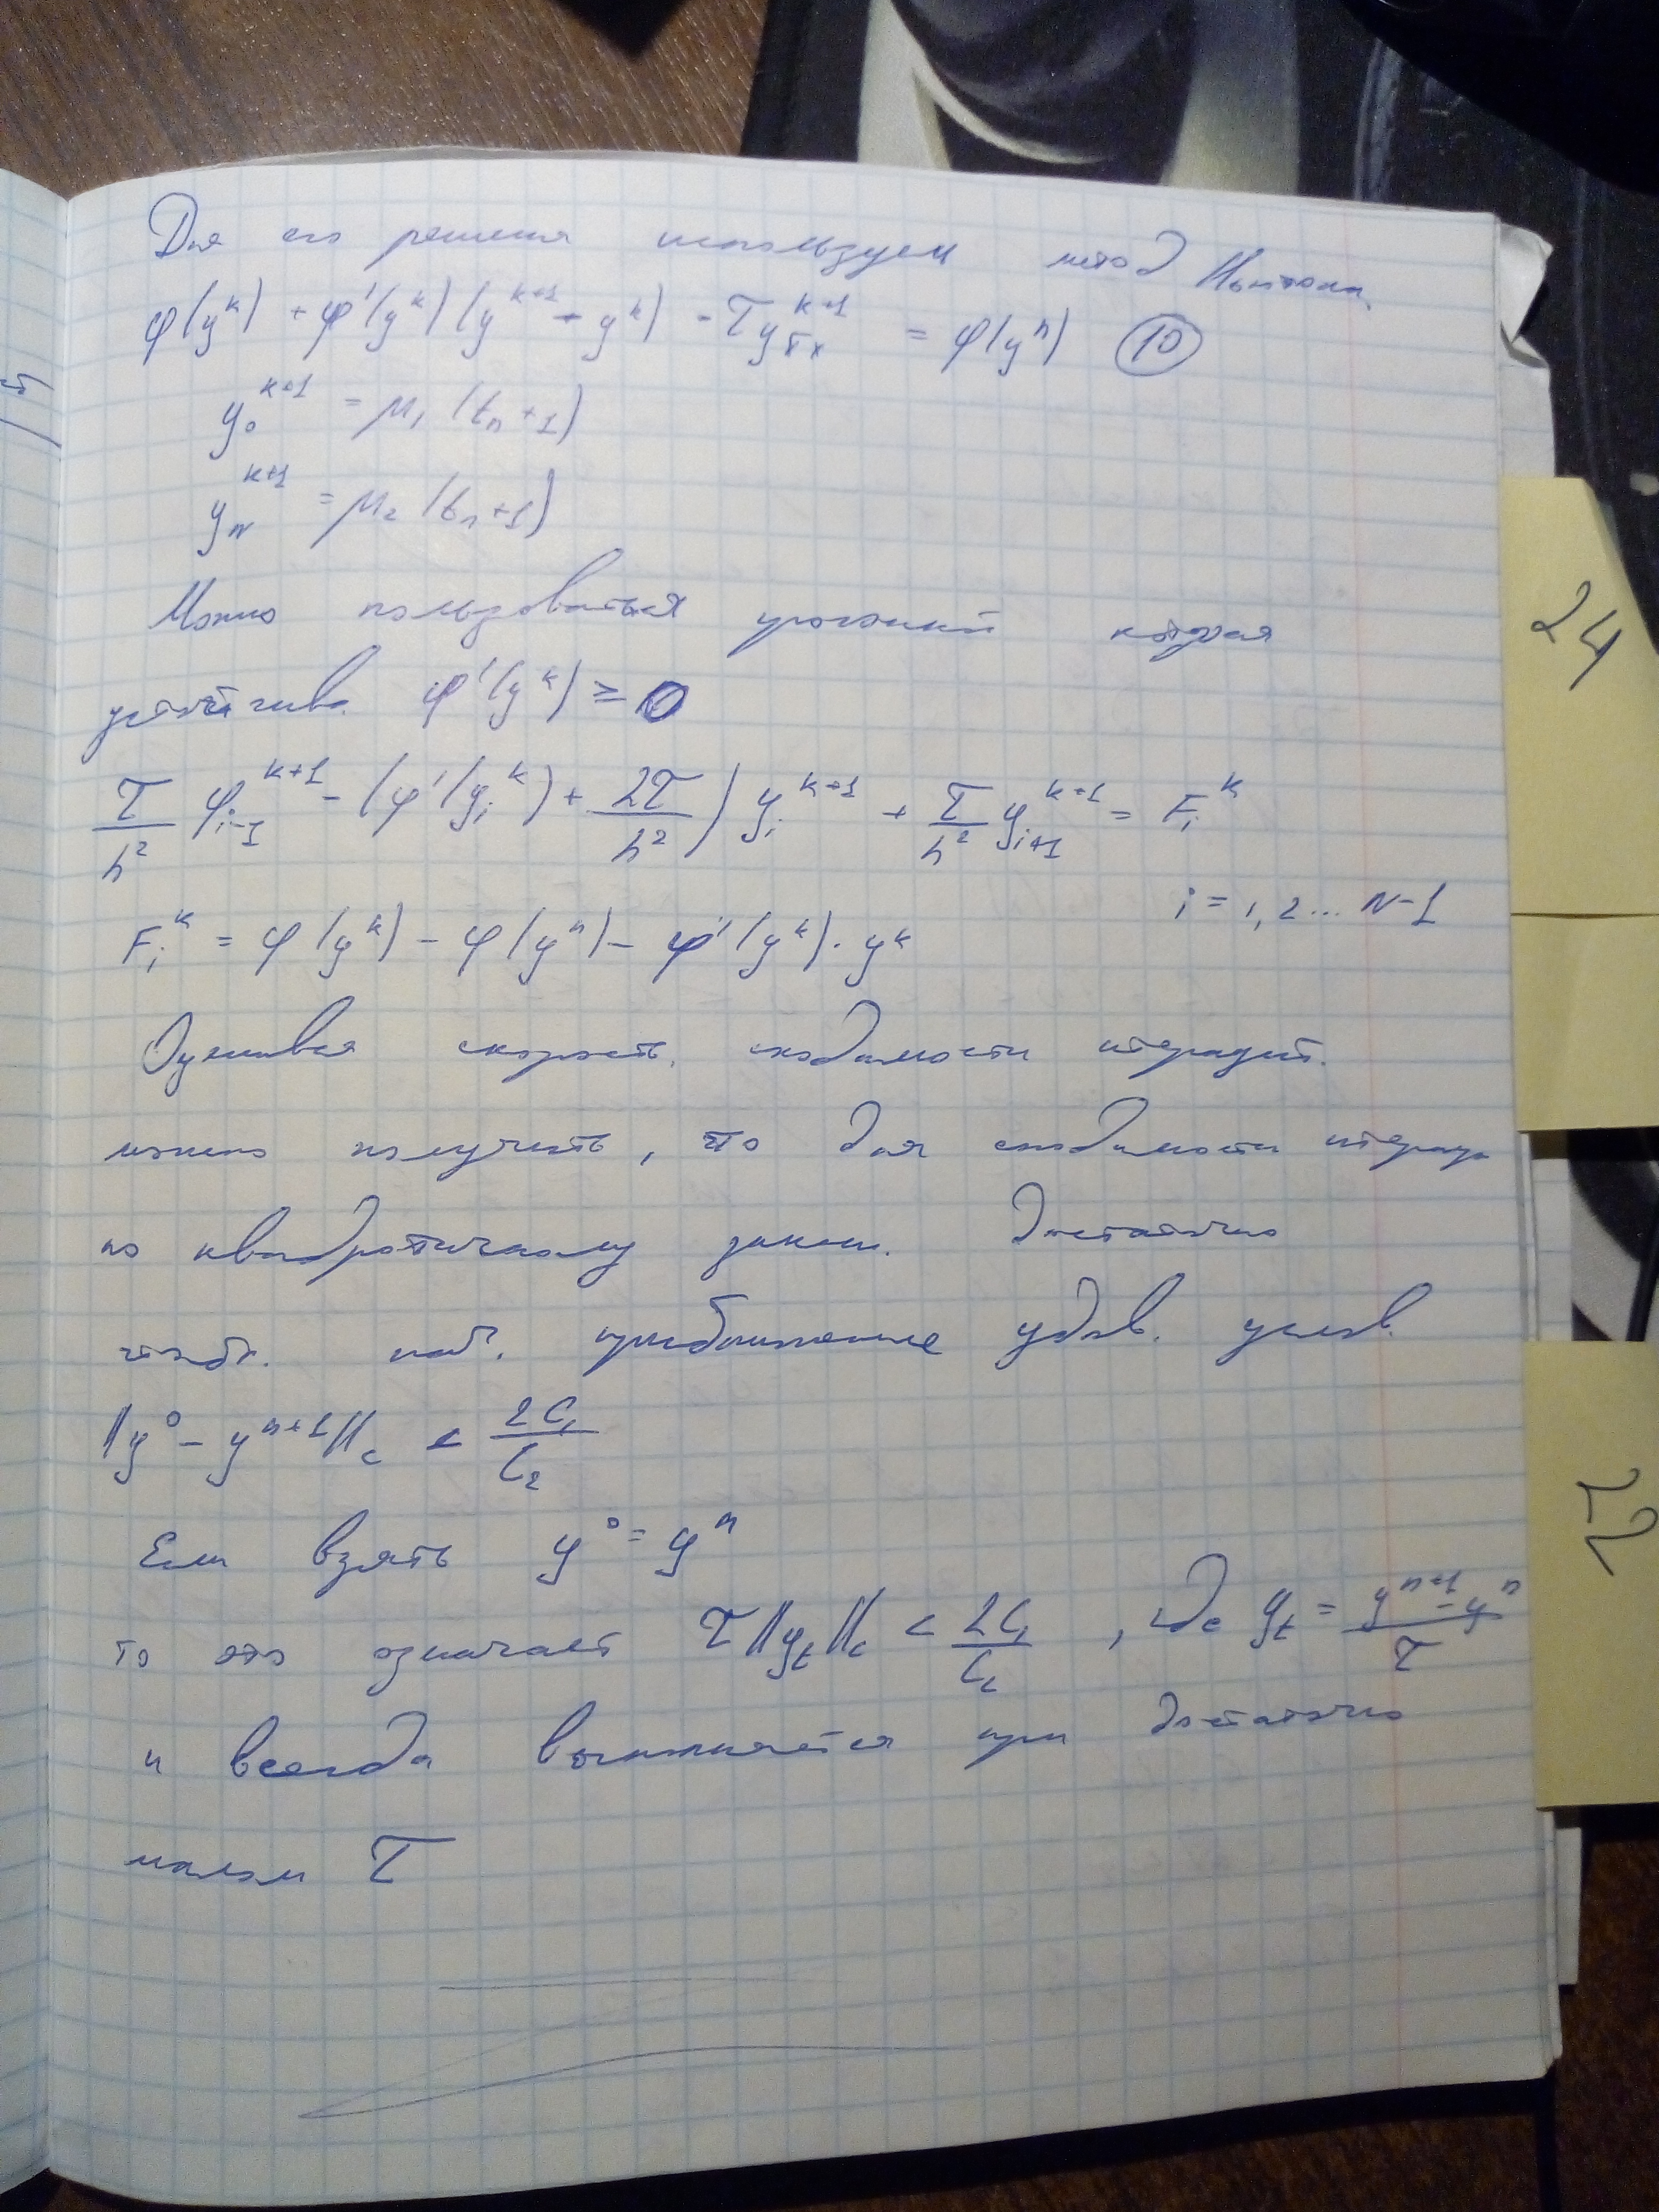 Для его решения используем метод Ньютона
φ(y^k) + φ'(y^k)(y^{k+1} - y^k) - τy_{x̄x}^{k+1} = φ(y^n) (10)
y_0^{k+1} = μ_1(t_n+1)
y_N^{k+1} = μ_2(t_n+1)
Можно пользоваться прогонкой которая
устойчива φ'(y^k) ≥ 0
τ/h^2 φ_{i-1}^{k+1} - (φ'(y_i^k) + 2τ/h^2) y_i^{k+1} + τ/h^2 y_{i+1}^{k+1} = F_i^k
i = 1, 2... N-1
F_i^k = φ(y^k) - φ(y^n) - φ'(y^k)·y^k
Оценивая скорость сходимости итераций
можно получить, что для сходимости итерац
по квадратичному закон. достаточно
чтобы нач. приближение удов. услов.
||y^0 - y^{n+1}||_c < 2C_1/C_2
Если взять y^0 = y^n
то это означает τ||y_t||_c < 2C_1/C_2, где y_t = (y^{n+1} - y^n)/τ
и всегда выполняется при достаточно
малом τ
24
22